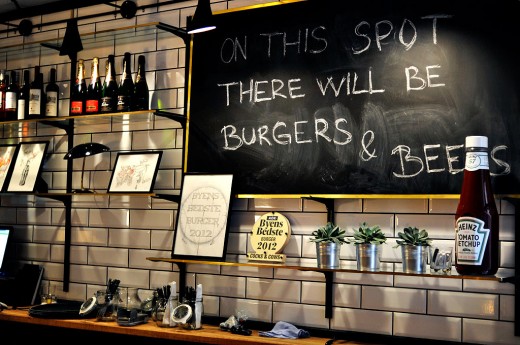 ON THIS SPOT
THERE WILL BE
BURGERS & BEERS
BYENS
BEDSTE
BURGER
2012
Byens
Bedste
BURGER
2012
COCKS & COWS
HEINZ
TOMATO
KETCHUP